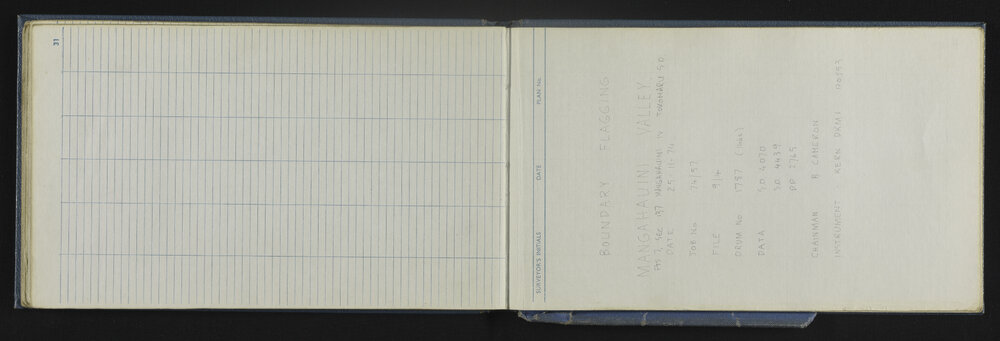 31
SURVEYOR'S INITIALS DATE PLAN No.
BOUNDARY FLAGGING
MANGAHAUINI VALLEY
Pt 7, Sec 197 MANGAHAUINI IV TOKOMARU S.D.
DATE 25.10.74
JOB No 74/57
FILE 9/4
DRUM No 1787
DATA S.O. 4070
S.O. 4439
DP 2765
CHAINMAN R CAMERON
INSTRUMENT KERN DKM1 90153